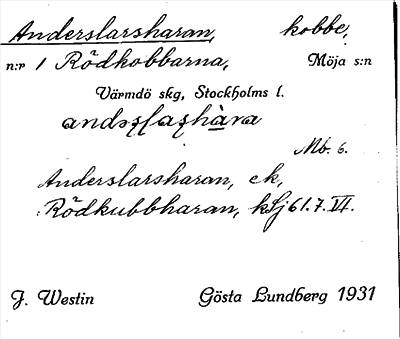 Anderslarsharan, kobbe,
n:r 1 Rödkobbarna, Möja s:n
Värmdö skg, Stockholms l.
Mb. 6.
Anderslarsharan, ek,
:Rödkubbharan, kSj 61.7.VI.
J. Westin Gösta Lundberg 1931